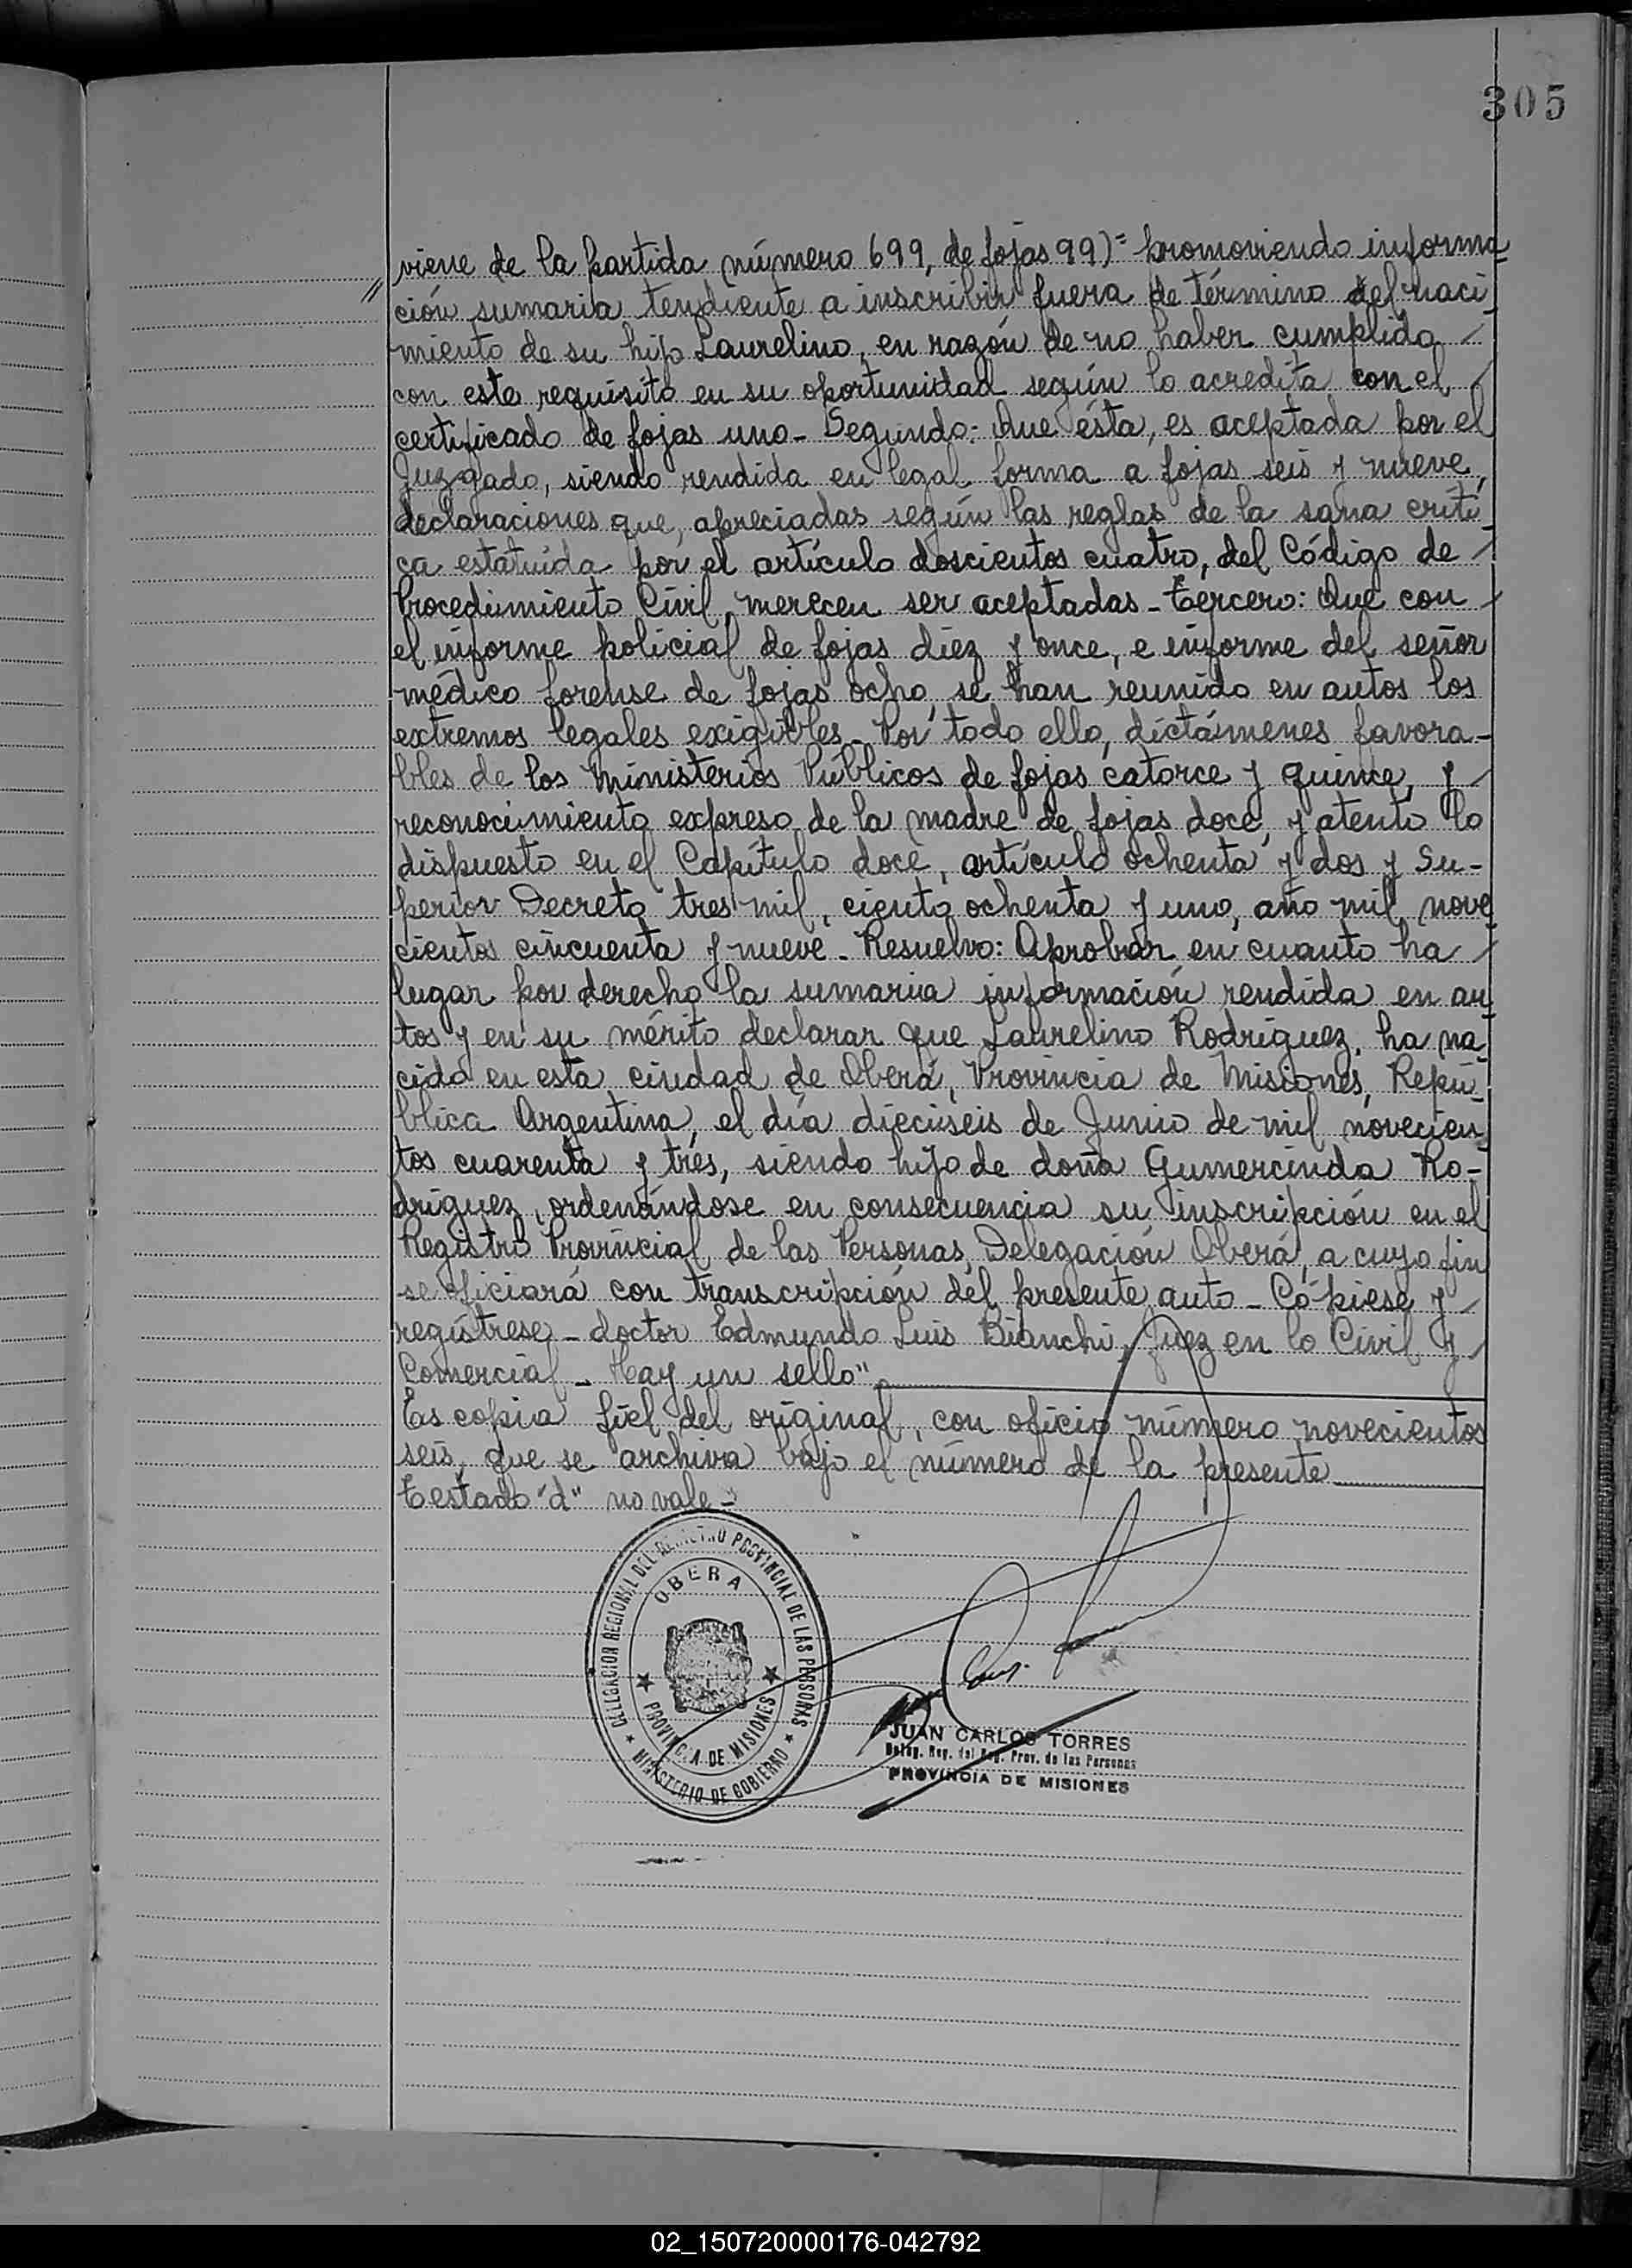 305
viene de la partida número 699, de fojas 99)= promoviendo informa-
// ción sumaria tendiente a inscribir fuera de término del naci-
miento de su hijo Laurelino, en razón de no haber cumplido
con este requisito en su oportunidad según lo acredita con el
certificado de fojas uno - Segundo: Que ésta, es aceptada por el
Juzgado, siendo rendida en legal forma a fojas seis y nueve,
declaraciones que, apreciadas según las reglas de la sana críti-
ca estatuida por el artículo doscientos cuatro, del Código de
Procedimiento Civil, merecen ser aceptadas - Tercero: Que con
el informe policial de fojas diez y once, e informe del señor
médico forense de fojas ocho, se han reunido en autos los
extremos legales exigibles - Por todo ello, dictámenes favora-
bles de los Ministerios Públicos de fojas catorce y quince, y
reconocimiento expreso de la madre de fojas doce, y atento lo
dispuesto en el Capítulo doce, artículo ochenta y dos y Su-
perior Decreto tres mil, ciento ochenta y uno, año mil nove
cientos cincuenta y nueve - Resuelvo: Aprobar en cuanto ha
lugar por derecho la sumaria información rendida en au-
tos y en su mérito declarar que Laurelino Rodríguez, ha na-
cido en esta ciudad de Oberá, Provincia de Misiones, Repú-
blica Argentina, el día dieciseis de Junio de mil novecien-
tos cuarenta y tres, siendo hijo de doña Gumercinda Ro-
dríguez, ordenándose en consecuencia su inscripción en el
Registro Provincial de las Personas, Delegación Oberá, a cuyo fin
se oficiará con transcripción del presente auto - Cópiese y
regístrese - doctor Edmundo Luis Bianchi, Juez en lo Civil y
Comercial - Hay un sello"
Es copia fiel del original, con oficio número novecientos
seis, que se archiva bajo el número de la presente
Testado "d" no vale -
DELEGACION REGIONAL DEL REGISTRO PROVINCIAL DE LAS PERSONAS
OBERA
PROVINCIA DE MISIONES
MINISTERIO DE GOBIERNO
JUAN CARLOS TORRES
Deleg. Reg. del Reg. Prov. de las Personas
PROVINCIA DE MISIONES
02_150720000176-042792